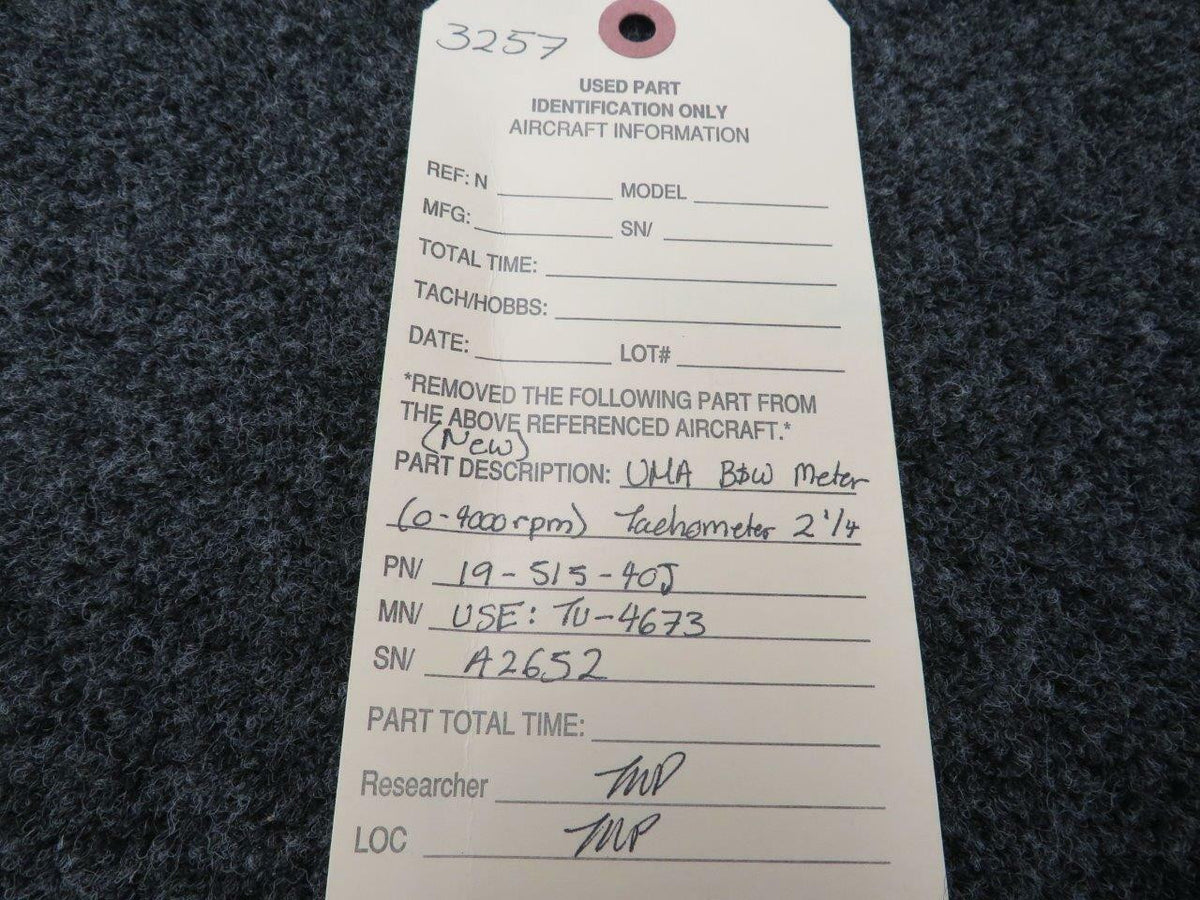 3257
USED PART
IDENTIFICATION ONLY
AIRCRAFT INFORMATION
REF: N MODEL
MFG: SN/
TOTAL TIME:
TACH/HOBBS:
DATE: LOT#
*REMOVED THE FOLLOWING PART FROM
THE ABOVE REFERENCED AIRCRAFT.*
(New)
PART DESCRIPTION: UMA B&W Meter
(0-4000rpm) Tachometer 2 1/4
PN/ 19-515-40J
MN/ USE: TU-4673
SN/ A2652
PART TOTAL TIME:
Researcher
LOC